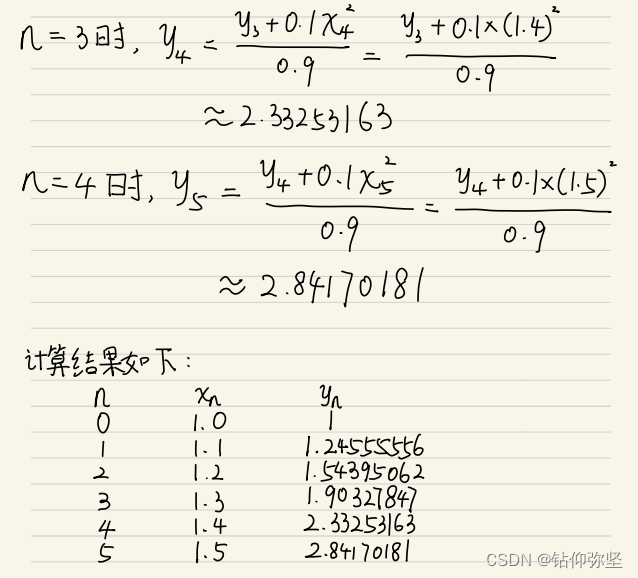 n=3时, y₄ = (y₃+0.1x₄²)/0.9 = (y₃+0.1×(1.4)²)/0.9
≈2.33253163
n=4时, y₅ = (y₄+0.1x₅²)/0.9 = (y₄+0.1×(1.5)²)/0.9
≈2.84170181
计算结果如下:
n xₙ yₙ
0 1.0 1
1 1.1 1.24555556
2 1.2 1.54395062
3 1.3 1.90327847
4 1.4 2.33253163
5 1.5 2.84170181
CSDN @钻仰弥坚